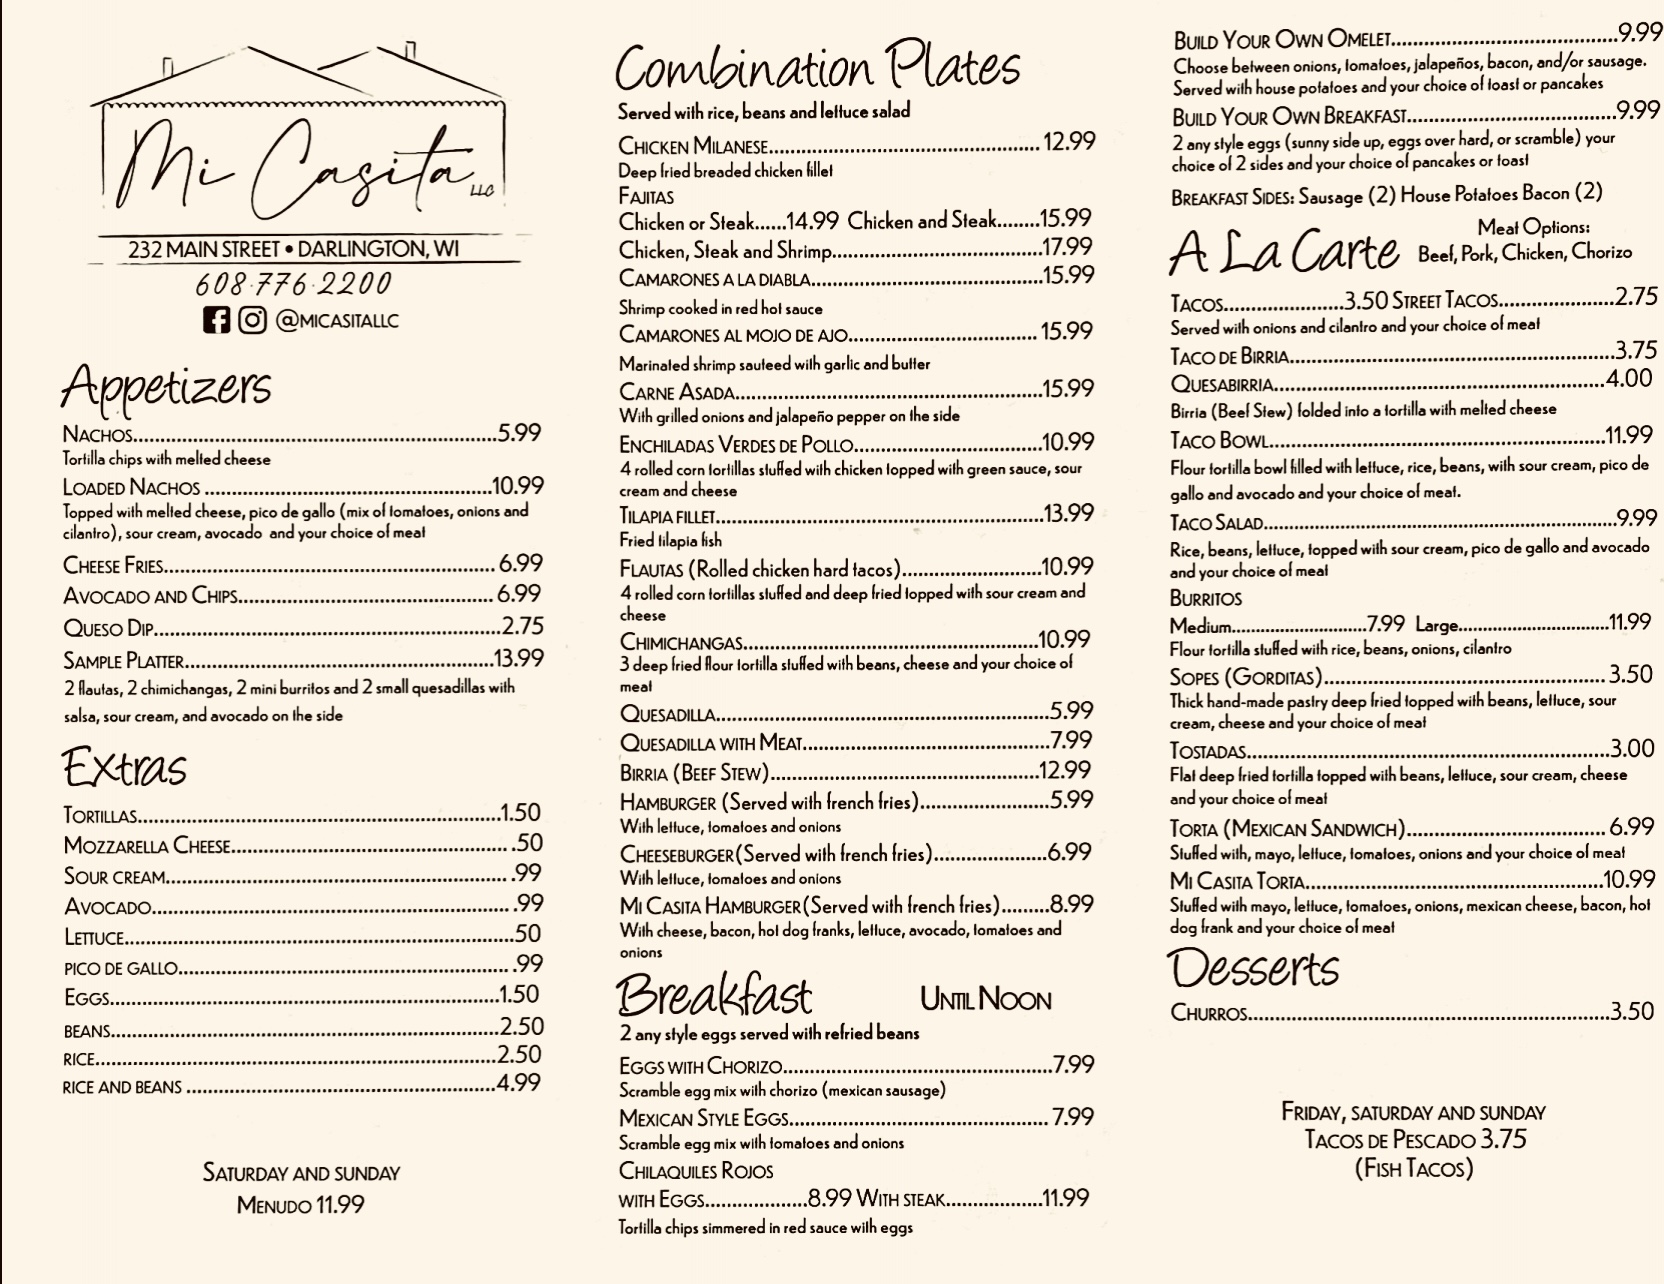 Mi Casita LLC
232 MAIN STREET • DARLINGTON, WI
608·776·2200
@MICASITALLC
Appetizers
NACHOS.....5.99
Tortilla chips with melted cheese
LOADED NACHOS.....10.99
Topped with melted cheese, pico de gallo (mix of tomatoes, onions and
cilantro), sour cream, avocado and your choice of meat
CHEESE FRIES.....6.99
AVOCADO AND CHIPS.....6.99
QUESO DIP.....2.75
SAMPLE PLATTER.....13.99
2 flautas, 2 chimichangas, 2 mini burritos and 2 small quesadillas with
salsa, sour cream, and avocado on the side
Extras
TORTILLAS.....1.50
MOZZARELLA CHEESE.....50
SOUR CREAM.....99
AVOCADO.....99
LETTUCE.....50
PICO DE GALLO.....99
EGGS.....1.50
BEANS.....2.50
RICE.....2.50
RICE AND BEANS.....4.99
SATURDAY AND SUNDAY
MENUDO 11.99
Combination Plates
Served with rice, beans and lettuce salad
CHICKEN MILANESE.....12.99
Deep fried breaded chicken fillet
FAJITAS
Chicken or Steak......14.99 Chicken and Steak........15.99
Chicken, Steak and Shrimp.....17.99
CAMARONES A LA DIABLA.....15.99
Shrimp cooked in red hot sauce
CAMARONES AL MOJO DE AJO.....15.99
Marinated shrimp sauteed with garlic and butter
CARNE ASADA.....15.99
With grilled onions and jalapeño pepper on the side
ENCHILADAS VERDES DE POLLO.....10.99
4 rolled corn tortillas stuffed with chicken topped with green sauce, sour
cream and cheese
TILAPIA FILLET.....13.99
Fried tilapia fish
FLAUTAS (Rolled chicken hard tacos).....10.99
4 rolled corn tortillas stuffed and deep fried topped with sour cream and
cheese
CHIMICHANGAS.....10.99
3 deep fried flour tortilla stuffed with beans, cheese and your choice of
meat
QUESADILLA.....5.99
QUESADILLA WITH MEAT.....7.99
BIRRIA (BEEF STEW).....12.99
HAMBURGER (Served with french fries).....5.99
With lettuce, tomatoes and onions
CHEESEBURGER(Served with french fries).....6.99
With lettuce, tomatoes and onions
MI CASITA HAMBURGER(Served with french fries).....8.99
With cheese, bacon, hot dog franks, lettuce, avocado, tomatoes and
onions
Breakfast UNTIL NOON
2 any style eggs served with refried beans
EGGS WITH CHORIZO.....7.99
Scramble egg mix with chorizo (mexican sausage)
MEXICAN STYLE EGGS.....7.99
Scramble egg mix with tomatoes and onions
CHILAQUILES ROJOS
WITH EGGS.....8.99 WITH STEAK.....11.99
Tortilla chips simmered in red sauce with eggs
BUILD YOUR OWN OMELET.....9.99
Choose between onions, tomatoes, jalapeños, bacon, and/or sausage.
Served with house potatoes and your choice of toast or pancakes
BUILD YOUR OWN BREAKFAST.....9.99
2 any style eggs (sunny side up, eggs over hard, or scramble) your
choice of 2 sides and your choice of pancakes or toast
BREAKFAST SIDES: Sausage (2) House Potatoes Bacon (2)
A La Carte
Meat Options:
Beef, Pork, Chicken, Chorizo
TACOS.....3.50 STREET TACOS.....2.75
Served with onions and cilantro and your choice of meat
TACO DE BIRRIA.....3.75
QUESABIRRIA.....4.00
Birria (Beef Stew) folded into a tortilla with melted cheese
TACO BOWL.....11.99
Flour tortilla bowl filled with lettuce, rice, beans, with sour cream, pico de
gallo and avocado and your choice of meat.
TACO SALAD.....9.99
Rice, beans, lettuce, topped with sour cream, pico de gallo and avocado
and your choice of meat
BURRITOS
Medium.....7.99 Large.....11.99
Flour tortilla stuffed with rice, beans, onions, cilantro
SOPES (GORDITAS).....3.50
Thick hand-made pastry deep fried topped with beans, lettuce, sour
cream, cheese and your choice of meat
TOSTADAS.....3.00
Flat deep fried tortilla topped with beans, lettuce, sour cream, cheese
and your choice of meat
TORTA (MEXICAN SANDWICH).....6.99
Stuffed with, mayo, lettuce, tomatoes, onions and your choice of meat
MI CASITA TORTA.....10.99
Stuffed with mayo, lettuce, tomatoes, onions, mexican cheese, bacon, hot
dog frank and your choice of meat
Desserts
CHURROS.....3.50
FRIDAY, SATURDAY AND SUNDAY
TACOS DE PESCADO 3.75
(FISH TACOS)